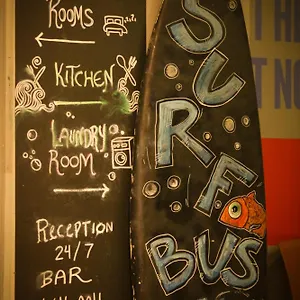 ROOMS
KITCHEN
LAUNDRY
ROOM
RECEPTION
24/7
BAR
SURF
BUS